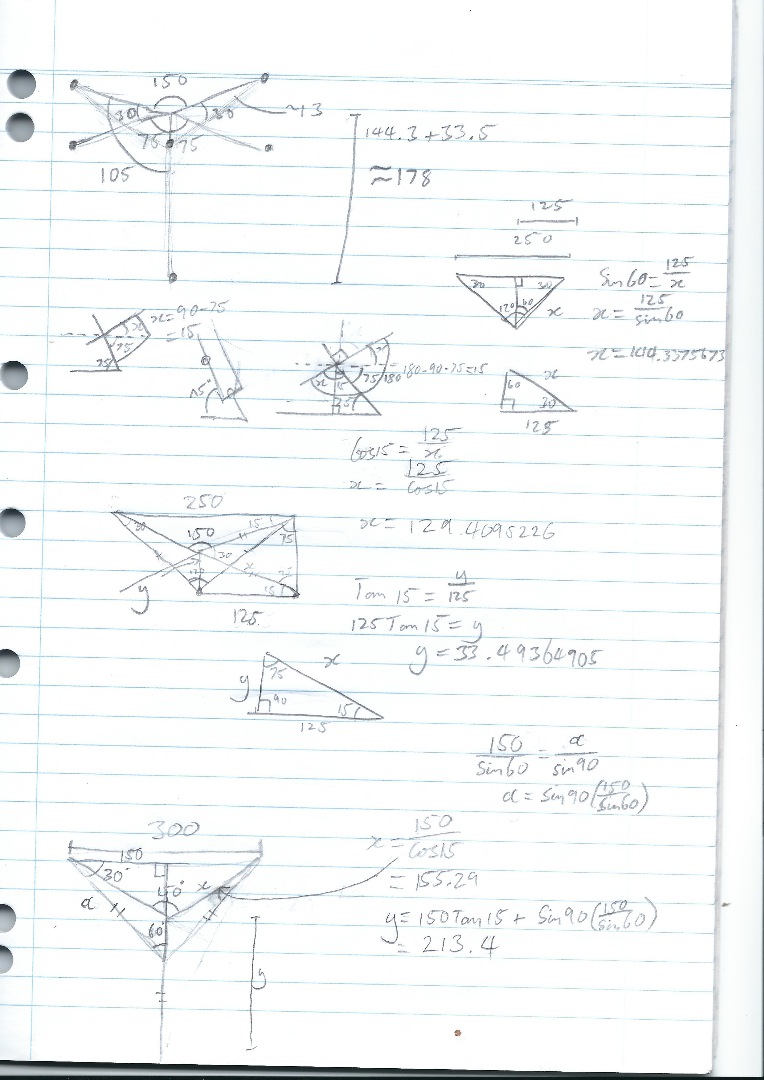 150
30 30 ~13
75 75
105
144.3 + 33.5
≈178
125
250
30 30
120 60 x
Sin 60 = 125/x
x = 125/sin60
x = 144.3375673
x = 90-75
= 15
x
75
75
75°
x
x 15 75 180
= 180-90-75=15
75
60 x
30
125
Cos15 = 125/x
x = 125/cos15
x = 129.4095226
250
30 15
150 75
30
15
y
125
Tan 15 = y/125
125 Tan 15 = y
y = 33.49364905
x
y 75
90 15
125
150/sin60 = a/sin90
a = Sin 90 (150/sin60)
300
150
30°
x
a
60°
y
x = 150/cos15
= 155.29
y = 150 Tan 15 + Sin 90 (150/sin60)
= 213.4